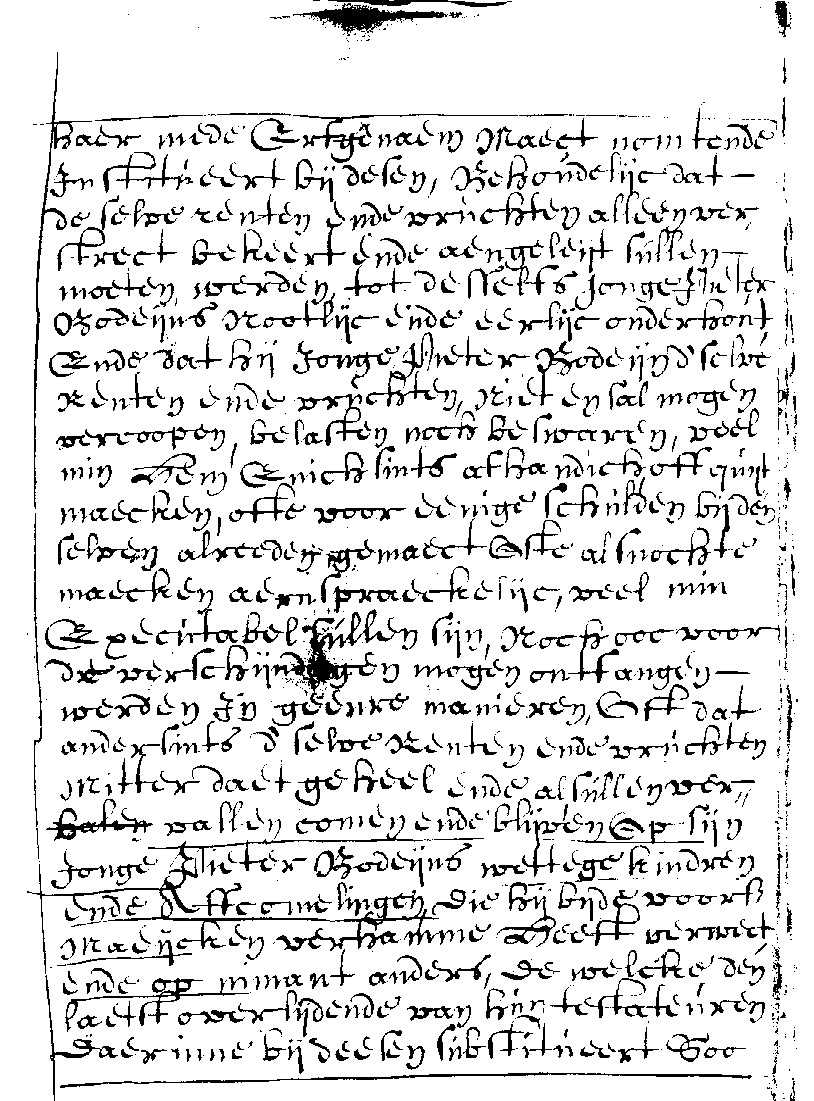 haer mede Erfgenaem Maect nomtende
Institueert bij desen, Behoudelijc dat –
de selve renten ende vruchten alleen ver
strect bekeert ende aengeleijt sullen –
moeten, werden, tot desselfs Jonge Pieter
Bodeijns Nootlijc ende eerlijc onderhout
Ende dat hij Jonge Pieter Bodeijn d' selve
Renten ende vruchten, Niet en sal mogen
vercoopen, belasten noch beswaren, veel
min Hem Enichsints afhandich oft quijt
maecken, ofte voor eenige schulden bij den
selven alreeden gemaect Ofte alsnochte
maecken aenspraeckelijc, veel min
Executabel sullen sijn, Noch ooc voor
de verschijndagen mogen ontfangen –
werden In geenre manieren, Oft dat
andersints d' selve Renten ende vruchten
Mitter daet geheel ende al sullen ver-
halen vallen comen ende blijven Op sijn
Jonge Pieter Bodeijns wettege kindren
ende Affcomelingen, die hij bijde voors
Maeijcken verhamme Heeft verwect
ende op nimant anders, de welcke den
laetst overlijdende van hun testateuren
Daer inne bij deesen substitueert Soo